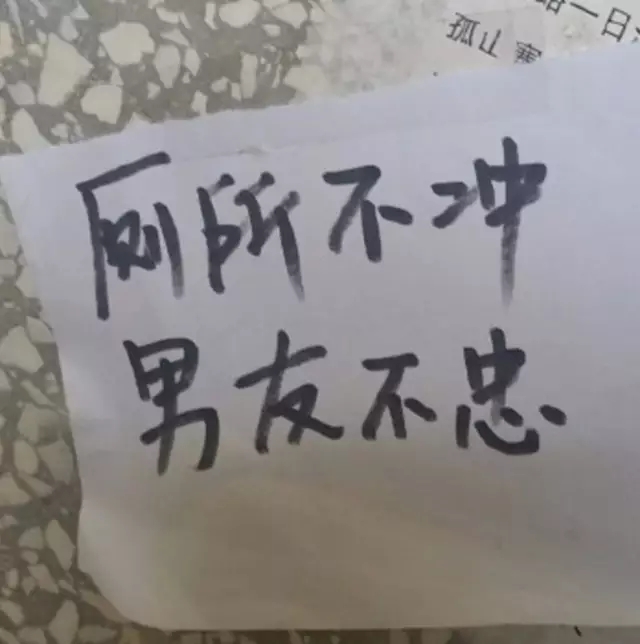 一日
孤止
厕所不冲
男友不忠